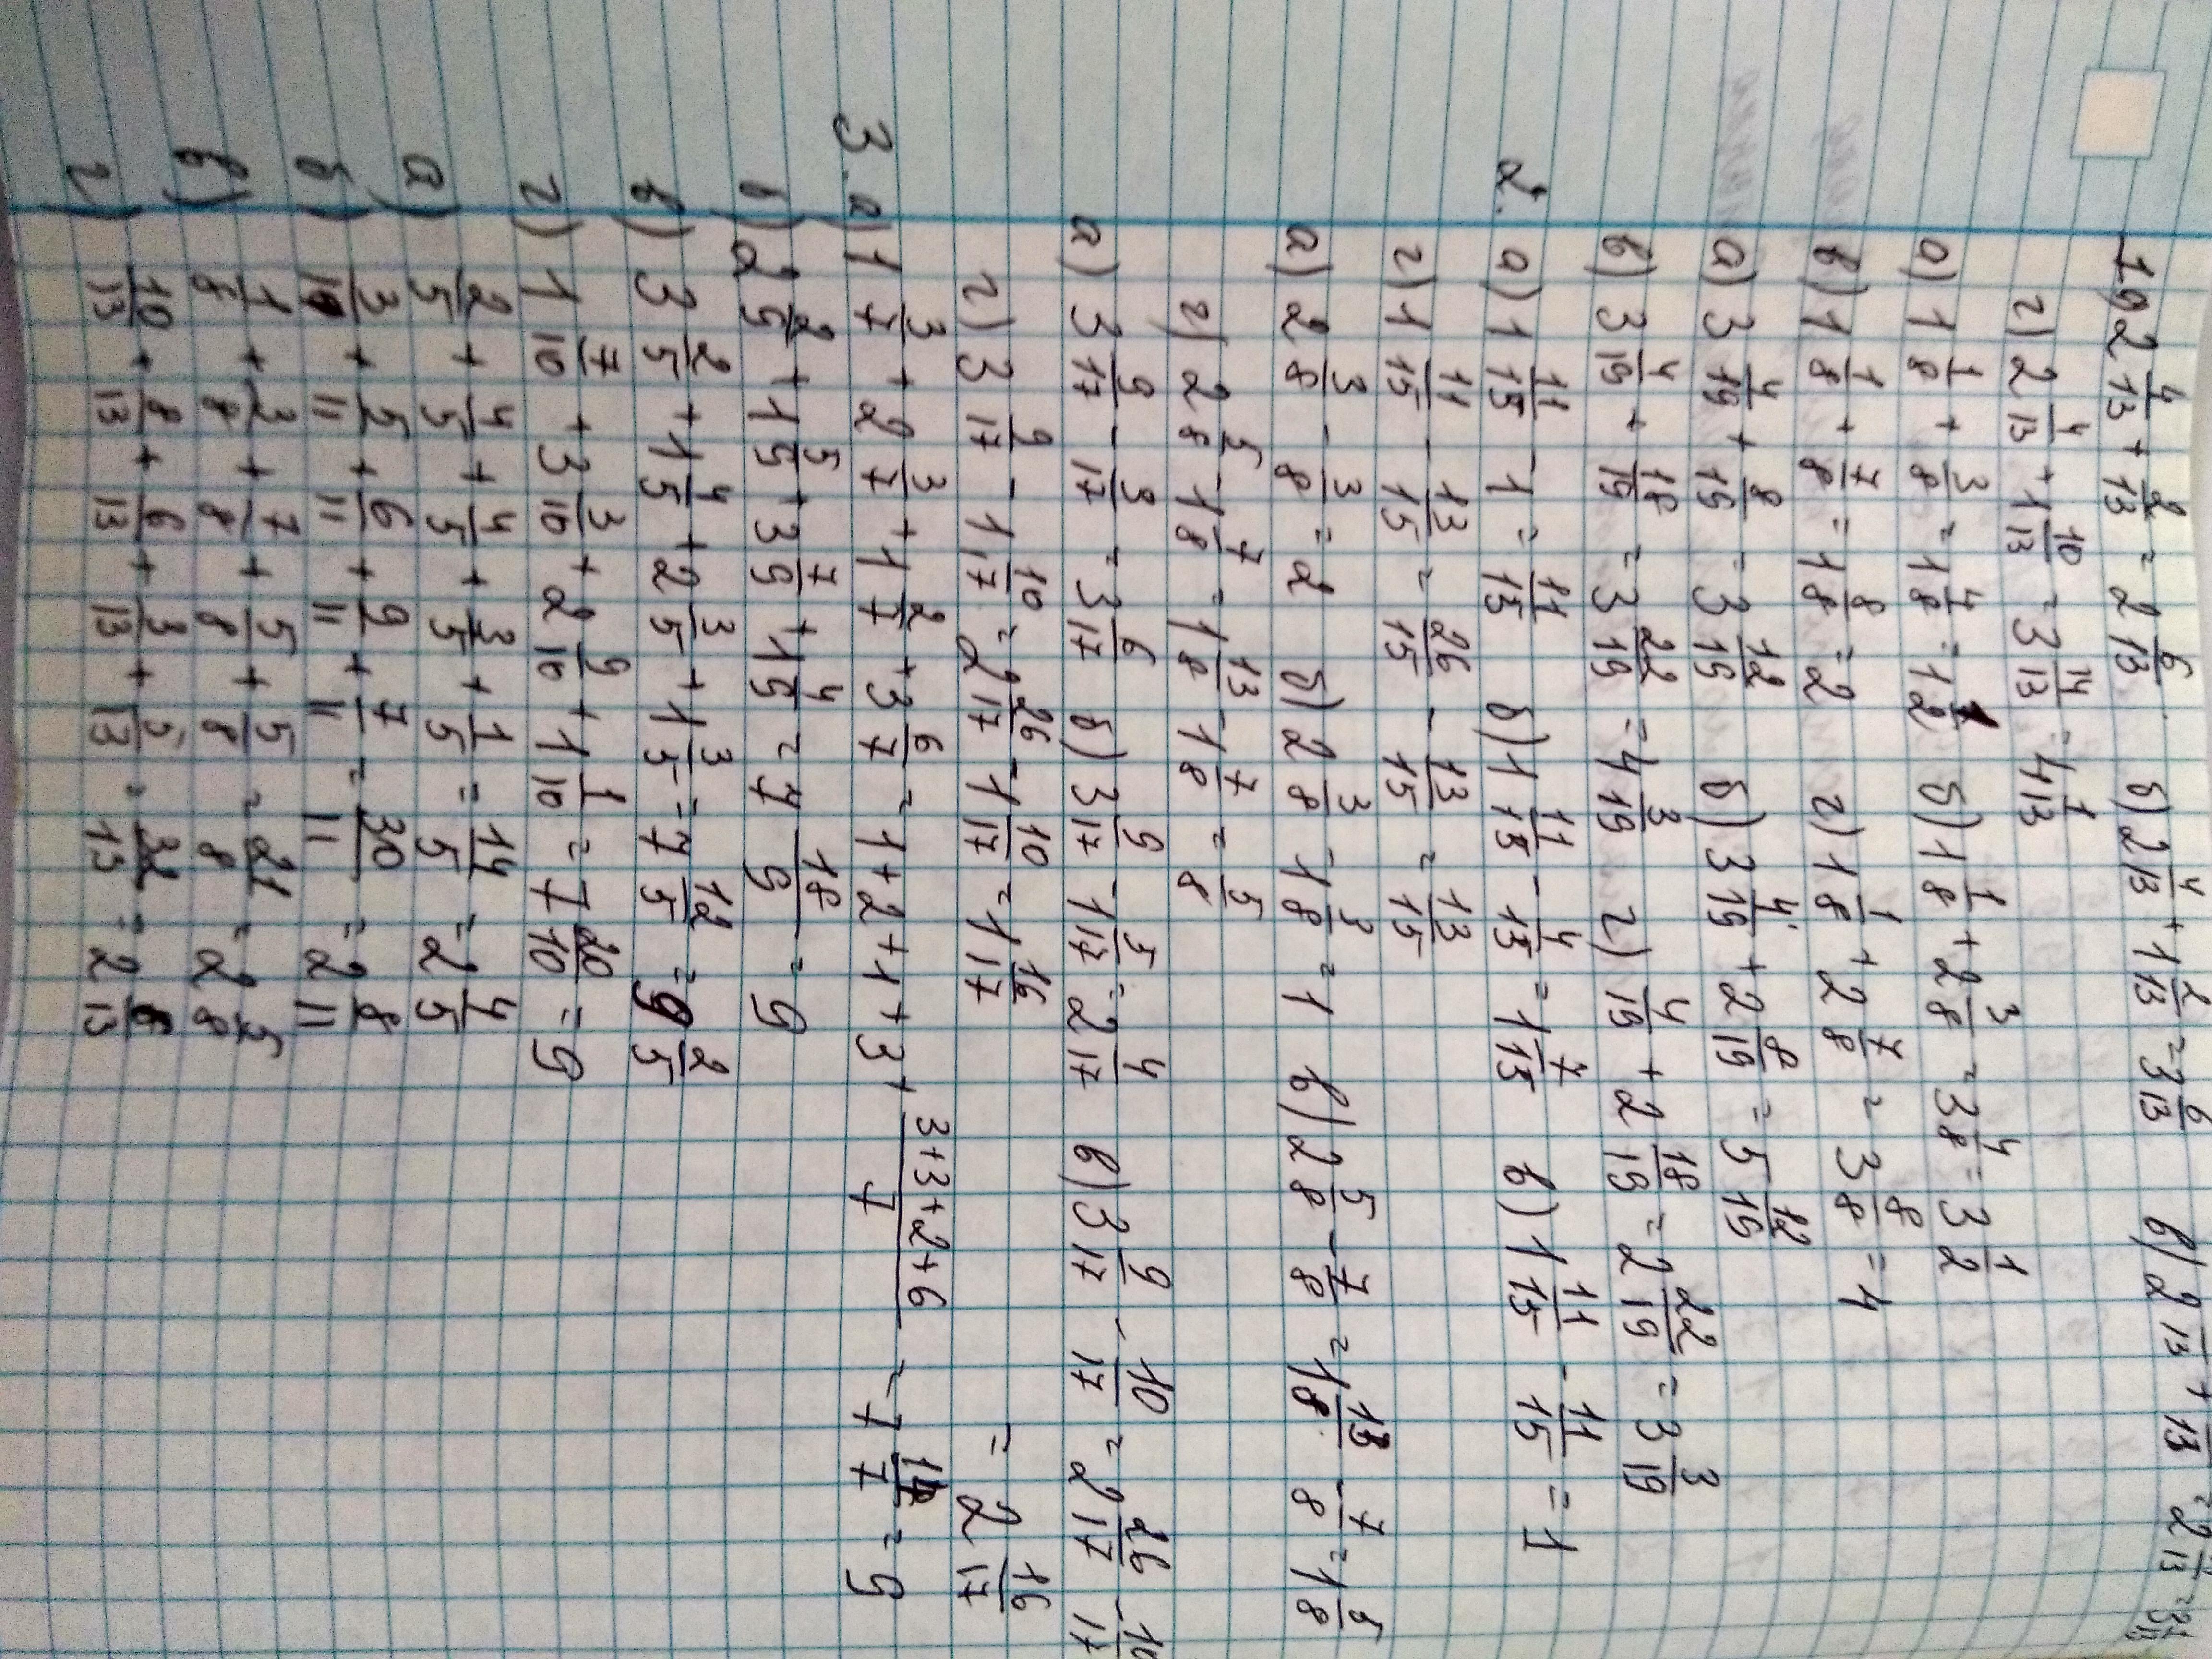 1. а) 2 4/13 + 2/13 = 2 6/13 б) 2 4/13 + 1 2/13 = 3 6/13 в) 2 /13 + /13 = 2 /13
г) 2 4/13 + 1 10/13 = 3 14/13 = 4 1/13
а) 1 1/8 + 3/8 = 1 4/8 = 1 1/2 б) 1 1/8 + 2 3/8 = 3 4/8 = 3 1/2
в) 1 1/8 + 7/8 = 1 8/8 = 2 г) 1 1/8 + 2 7/8 = 3 8/8 = 4
а) 3 4/19 + 8/19 = 3 12/19 б) 3 4/19 + 2 8/19 = 5 12/19
в) 3 4/19 + 18/19 = 3 22/19 = 4 3/19 г) 4/19 + 2 18/19 = 2 22/19 = 3 3/19
2. а) 1 11/15 - 1 = 11/15 б) 1 11/15 - 4/15 = 1 7/15 в) 1 11/15 - 11/15 = 1
г) 1 11/15 - 13/15 = 26/15 - 13/15 = 13/15
а) 2 3/8 - 3/8 = 2 б) 2 3/8 - 1 3/8 = 1 в) 2 5/8 - 7/8 = 1 13/8 - 7/8 = 1 5/8
г) 2 5/8 - 1 7/8 = 1 13/8 - 1 7/8 = 5/8
а) 3 9/17 - 3/17 = 3 6/17 б) 3 9/17 - 1 5/17 = 2 4/17 в) 3 9/17 - 10/17 = 2 26/17 - 10/17
= 2 16/17
г) 3 9/17 - 1 10/17 = 2 26/17 - 1 10/17 = 1 16/17
3. а) 1 3/7 + 2 3/7 + 1 2/7 + 3 6/7 = 1+2+1+3+ 3+3+2+6/7 = 7 14/7 = 9
б) 2 2/9 + 1 5/9 + 3 7/9 + 1 4/9 = 7 18/9 = 9
в) 3 2/5 + 1 4/5 + 2 3/5 + 1 3/5 = 7 12/5 = 9 2/5
г) 1 7/10 + 3 3/10 + 2 9/10 + 1 1/10 = 7 20/10 = 9
а) 2/5 + 4/5 + 4/5 + 3/5 + 1/5 = 14/5 = 2 4/5
б) 3/11 + 5/11 + 6/11 + 9/11 + 7/11 = 30/11 = 2 8/11
в) 1/8 + 3/8 + 7/8 + 5/8 + 5/8 = 21/8 = 2 5/8
г) 10/13 + 8/13 + 6/13 + 3/13 + 5/13 = 32/13 = 2 6/13